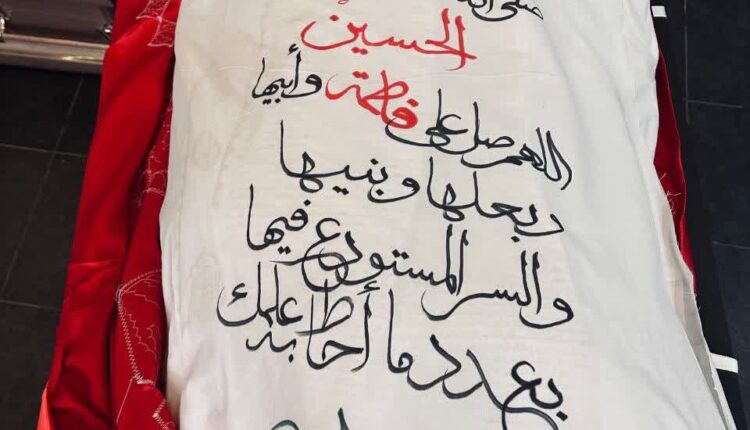 صلى الله
الحسين
اللهم صل على فاطمة وأبيها
وبعلها وبنيها
والسر المستودع فيها
بعدد ما أحاط به علمك